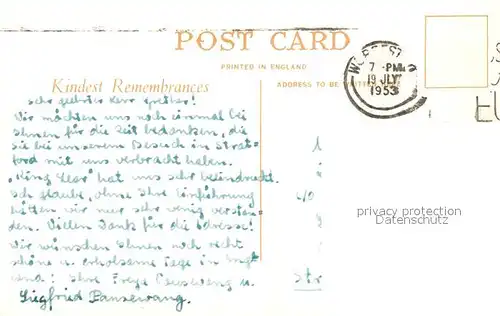 POST CARD
PRINTED IN ENGLAND
Kindest Remembrances
ADDRESS TO BE
7 - PM
19 JLY
1953
Sehr geehrter Herr
Wir möchten uns noch einmal bei
Ihnen für die Zeit bedanken, die
Sie bei unserem Besuch in Strat-
ford mit uns verbracht haben.
"King Lear" hat uns sehr beeindruckt.
Ich glaube, ohne Ihre Einführung
hätten wir nur sehr wenig verstan-
den. Vielen Dank für die Adresse!
Wir wünschen Ihnen noch recht
schöne u. erholsame Tage in Eng-
land! Ihre Freya u.
Siegfried Pansewang.
c/o
Str
privacy protection